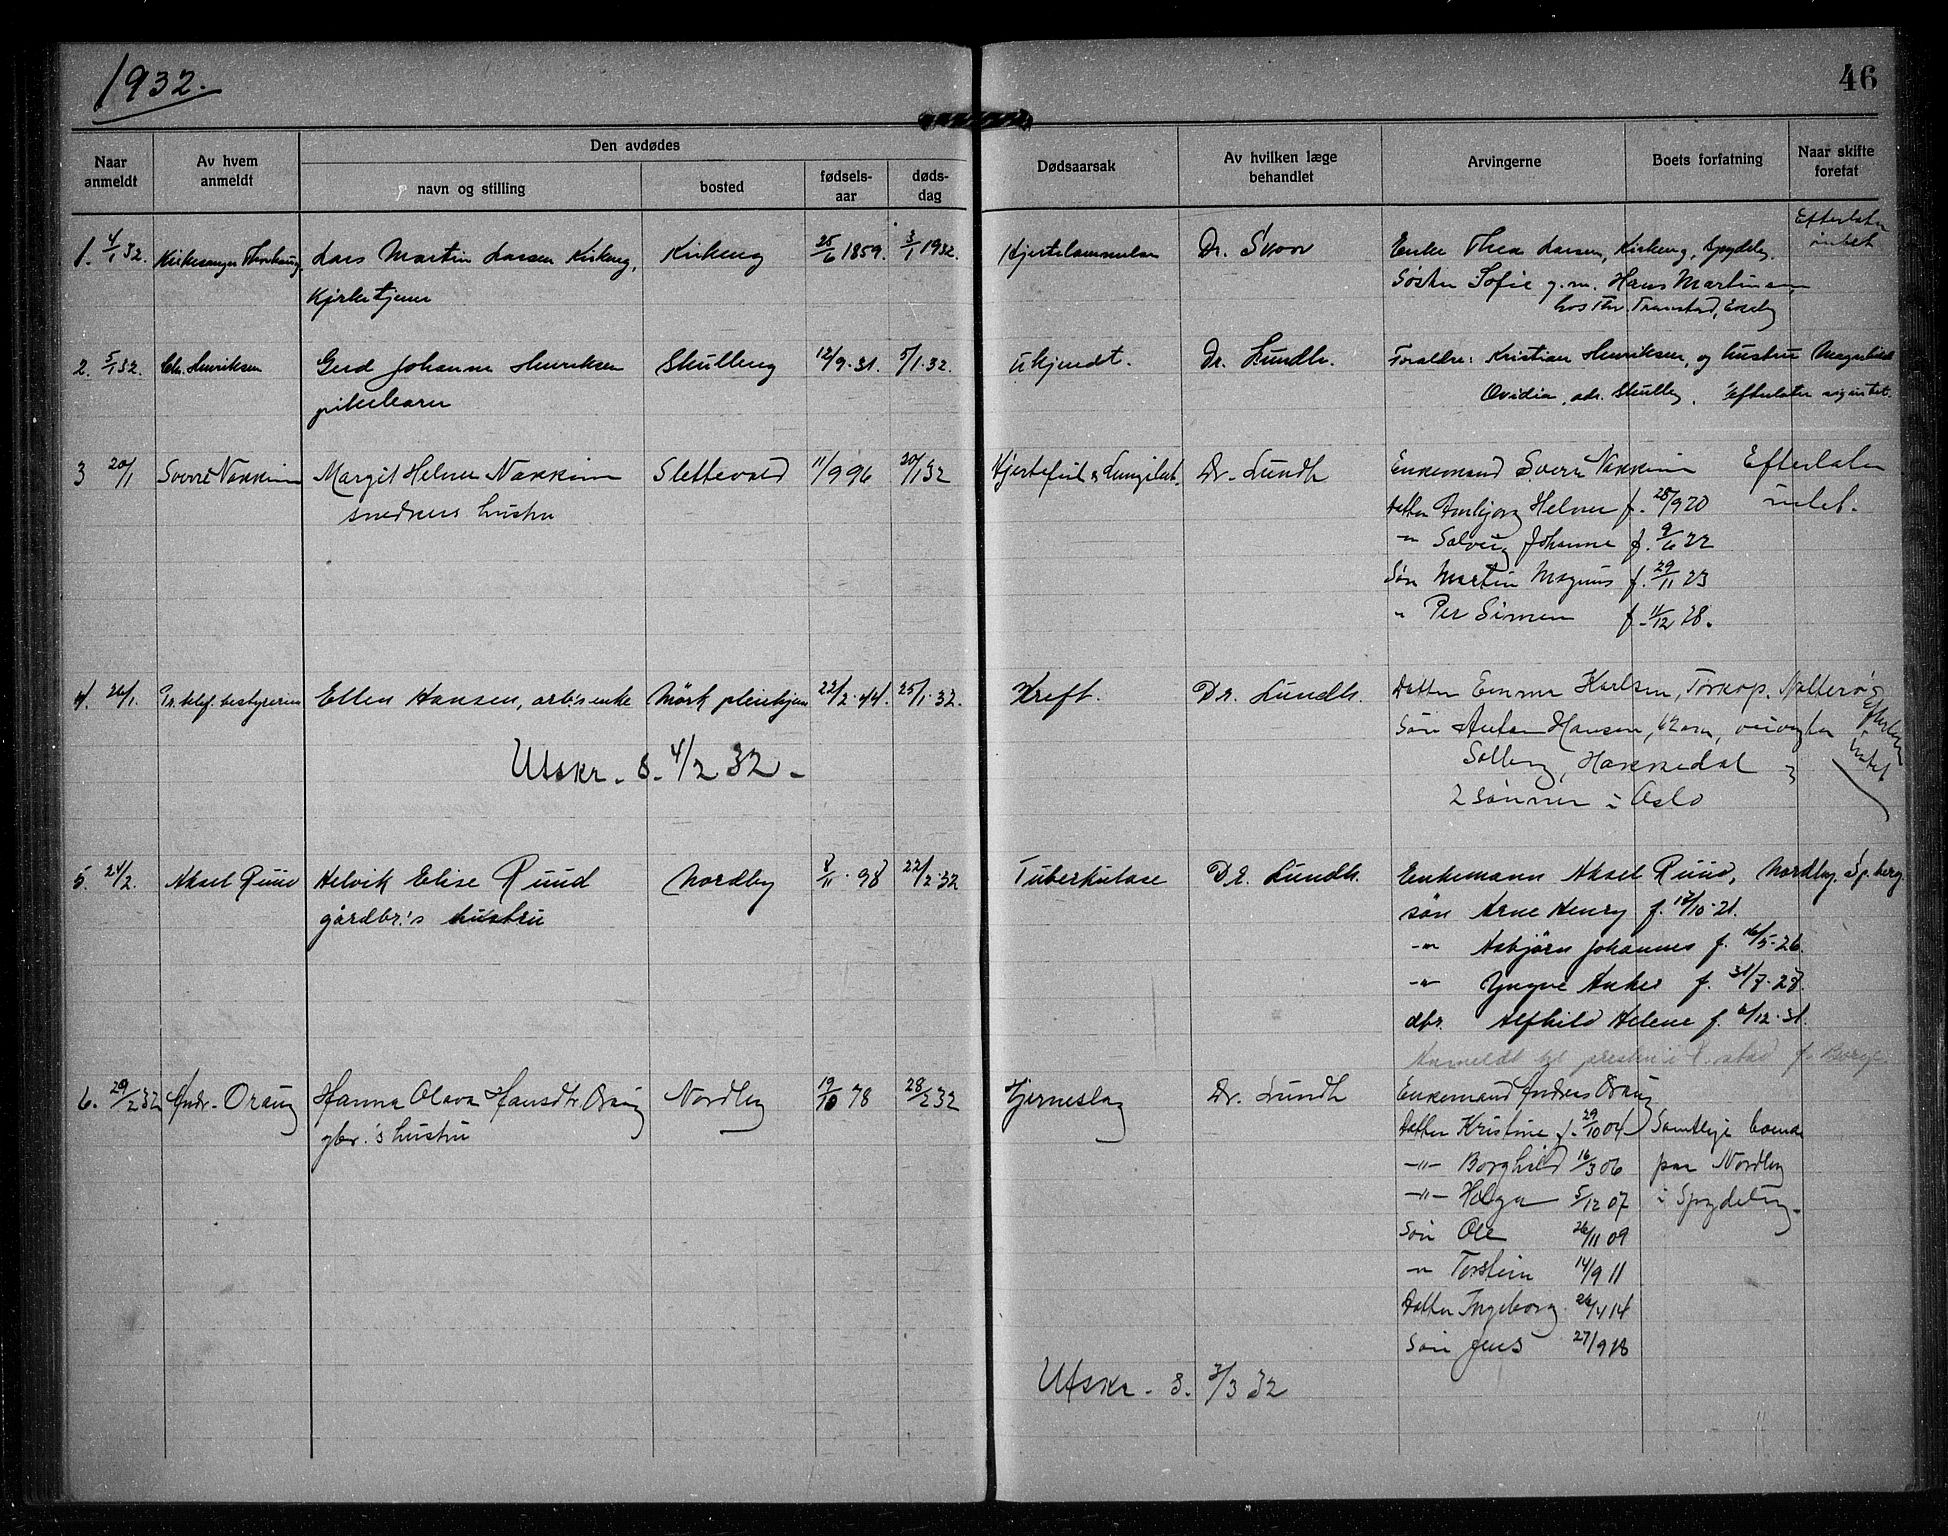 1932.
46
Naar anmeldt
Av hvem anmeldt
Den avdødes
navn og stilling
bosted
fødsels-aar
døds-dag
Dødsaarsak
Av hvilken læge behandlet
Arvingerne
Boets forfatning
Naar skifte foretat
1. 4/1 32. Kirkesanger Lars Martin Larsen Kirkeng, Kirkeng 25/6 1859. 3/1 1932. Hjertelammelse Dr. Enke Thea Larsen, Kirkeng, Spydeberg. Efterlater
intet
Kirketjener Søster Sofie g.m. Hans Martinsen
2. 5/1 32. Chr. Henriksen Gerd Johanne Henriksen Skulleng 12/9.31. 5/1.32. Ukjendt. Dr. Lundh. Foraldre: Kristian Henriksen, og hustru Magnhild
pikebarn Ovidia, adr. Efterlater intet.
3 20/1 Sverre Nakkim Margit Helene Nakkim Slettevold 11/9 96 20/1 32 Hjertefeil & Lungebet. Dr. Lundh Enkemand Sverre Nakkim Efterlater
snedkers hustru Datter Annbjørg Helene f. 28/9 20 intet.
-"- Solveig Johanne f. 9/6 22
Søn Martin Magnus f. 29/11 23
" Per Simen f. 11/12 28.
4. 26/1. bestyrerinne Ellen Hansen, arb.s enke Mørk pleiehjem 22/2.44. 25/1.32. Kreft. Dr. Lundh. Datter Emma Karlsen, Torkop,
Søn Anton Hansen, Efterlater
intet
Utskr. S. 4/2 32. Solberg, Hakkedal
2 sønner i Oslo
5. 24/2. Aksel Ruud Helvik Elise Ruud Nordby 8/11.98 22/2.32 Tuberkulose Dr. Lundh. Enkemann Aksel Ruud, Nordby, Sp.berg.
gårdbr.'s hustru søn Arne Henry f. 12/10-21.
-"- Asbjørn Johannes f. 16/5-26.
-"- Yngve Anker f. 31/7.28.
dtr. Alfhild Helene f. 6/12.31.
Anmeldt til presten i
6. 29/2 32 Andr. Oraug Hanna Olava Hansdtr Oraug Nordby 19/10 78 28/2 32 Hjerneslag Dr. Lundh Enkemand Andreas Oraug
gbr.'s hustru Datter Kristine f. 29/10 04 Samtlige boende
-"- Borghild 16/3 06 paa Nordby
-"- Helga 5/12 07 i Spydeberg.
Søn Ole 26/11 09
-"- Torstein 14/9 11
Datter Ingeborg 26/4 14
Søn Jens 27/9 18
Utskr. S. 3/3 32